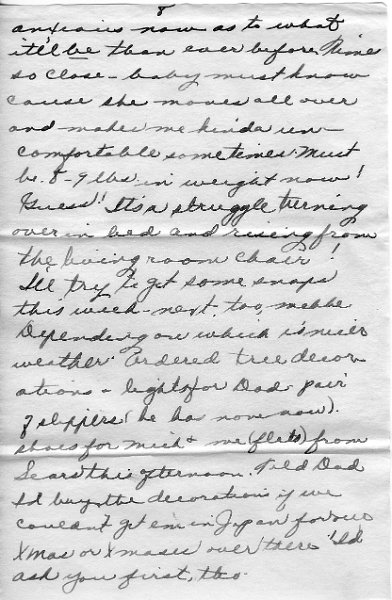 8
anxious now as to what
it'll be than ever before. Time
so close - baby must know
cause she moves all over
and makes me kinda un-
comfortable sometimes. Must
be 8-9 lbs. in weight now!
Guess! It's a struggle turning
over in bed and rising from
the living room chair!
I'll try to get some snaps
this week - next, too, mebbe
Depending on which is nicer
weather. Ordered tree decor-
ations - lights for Dad pair
of slippers (he has none now).
shoes for Mich & me (flats) from
Sears this afternoon. Told Dad
I'd buy the decorations if we
couldn't get em in Japan for our
Xmas or Xmases over there! I'd
ask you first, tho.